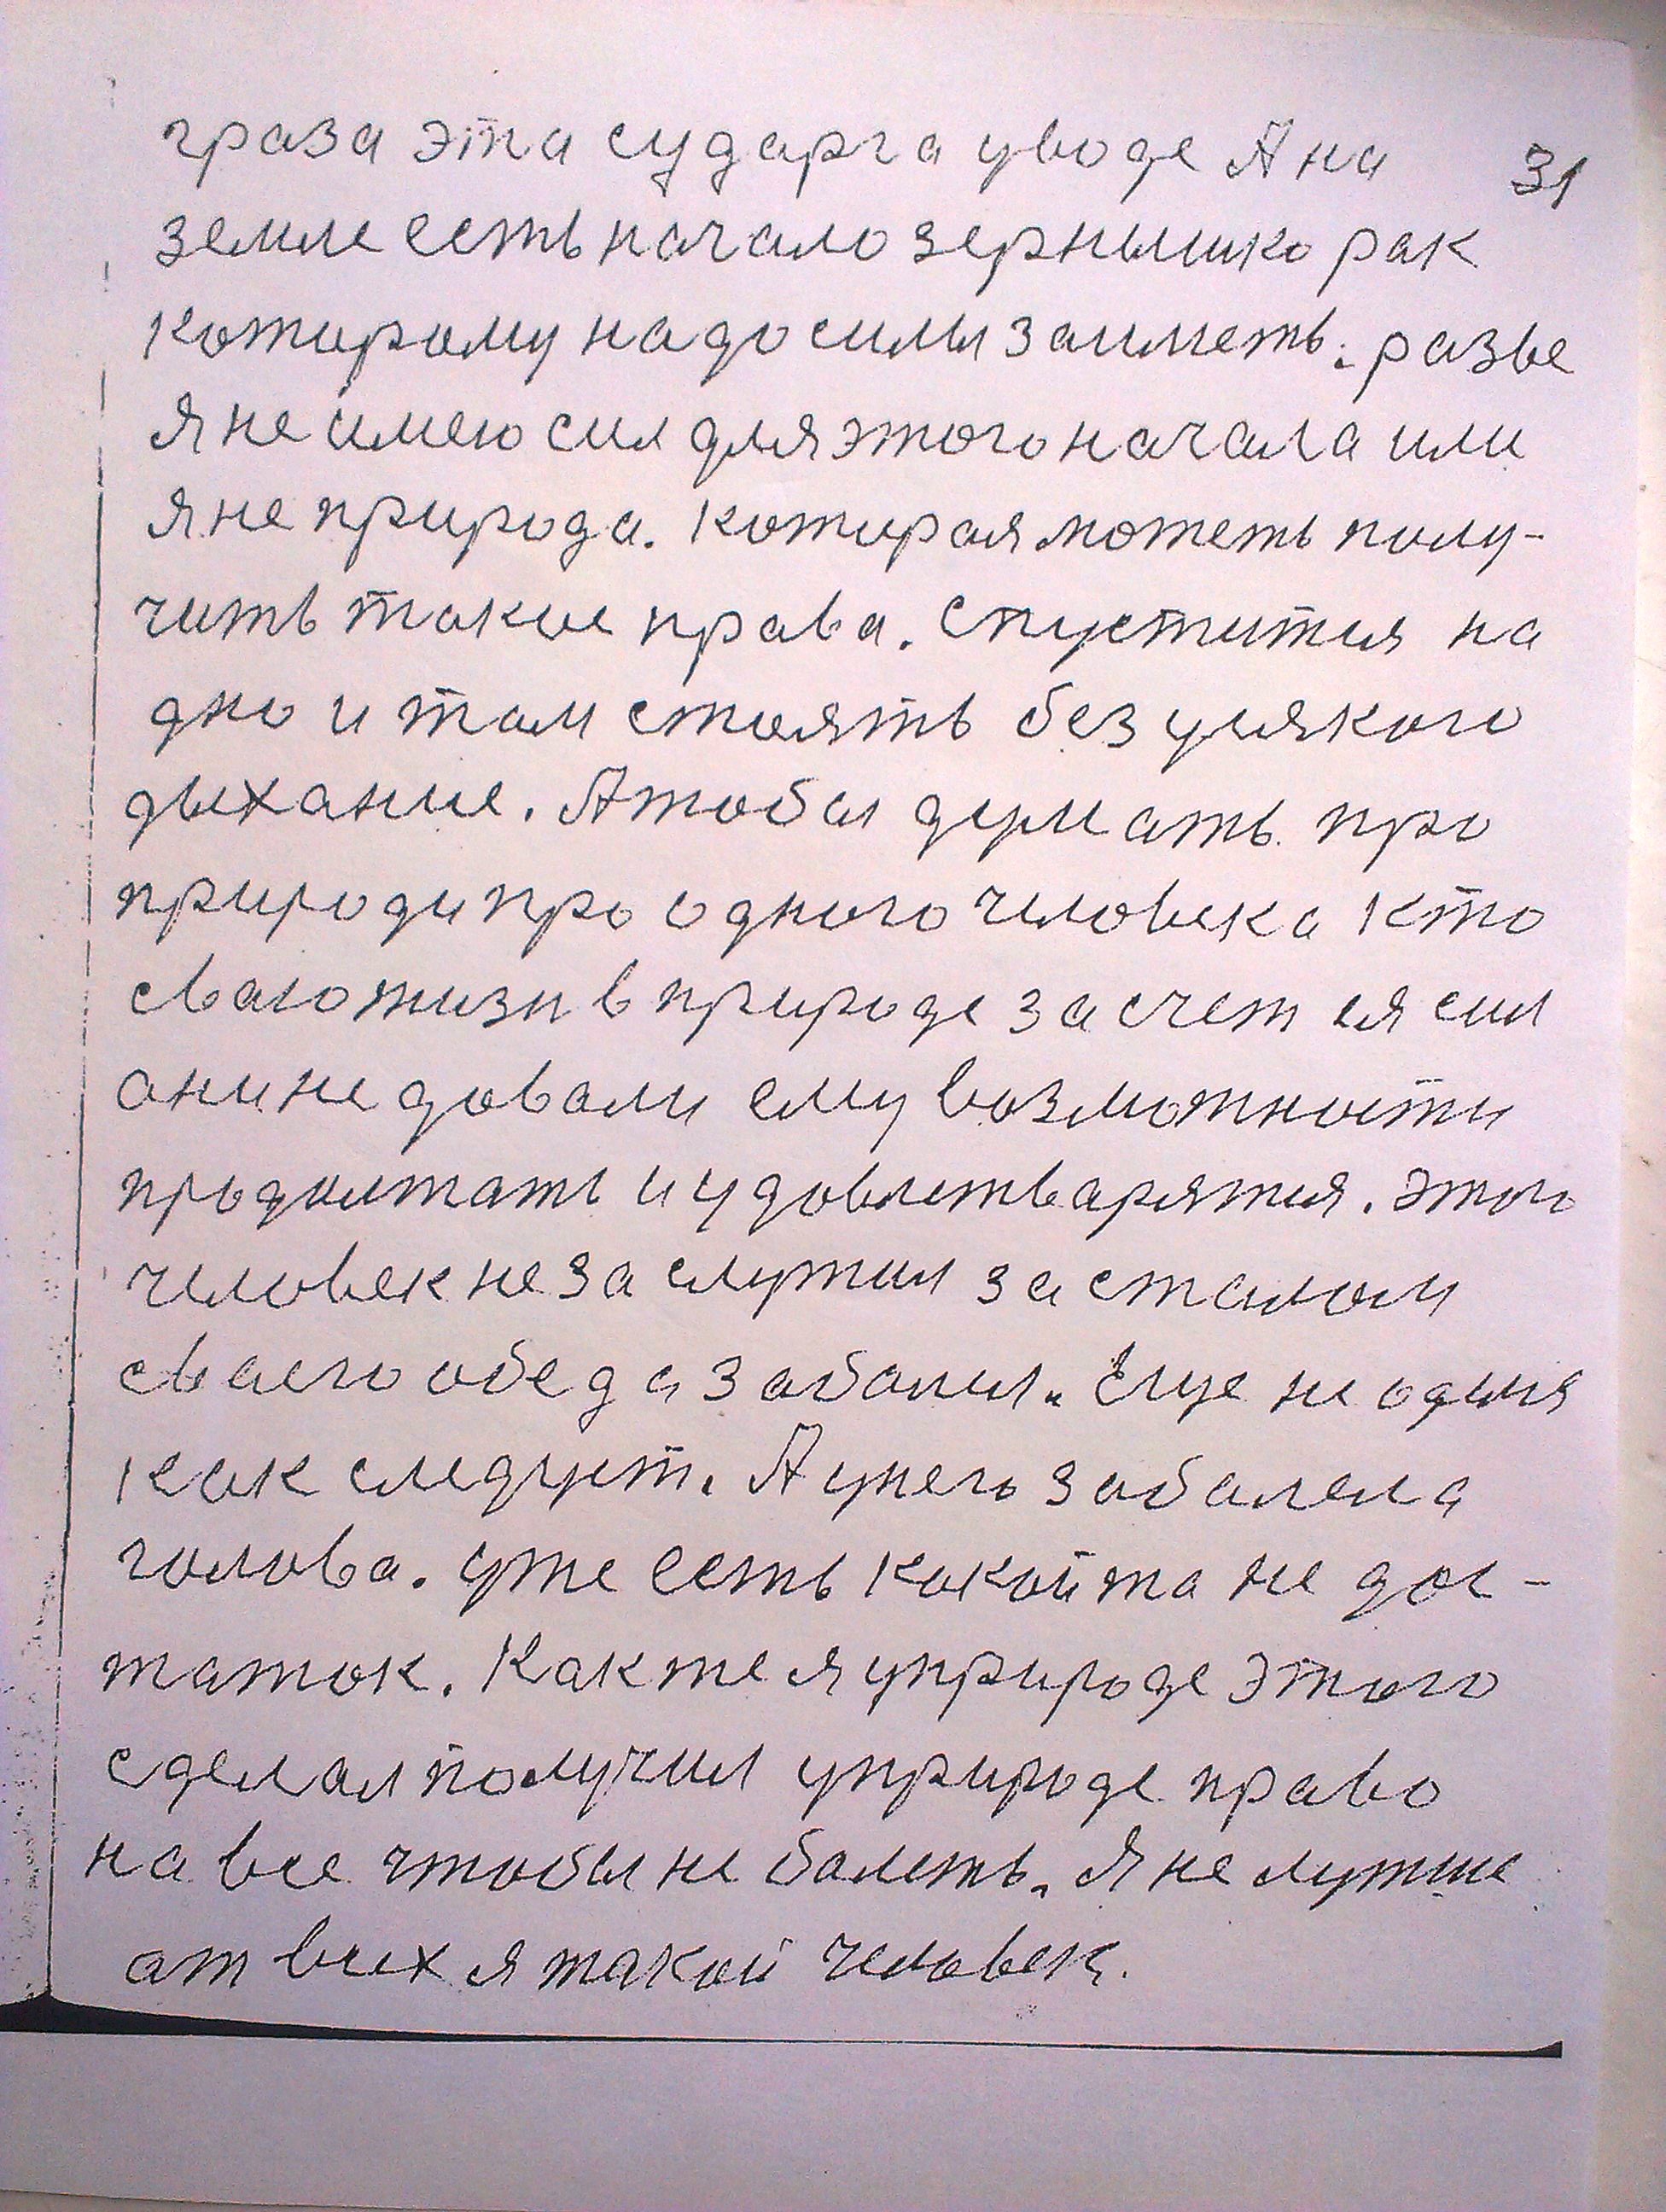 граза эта сударга уводе А на 31
земле есть начало зернышко рак
которому надо силы заиметь. разве
я не имею сил для этого начала или
я не природа. котораяможеть полу-
чить такие права. Спуститися на
дно и там стоять без усякого
дыхание. Атобы думать про
природу про одного человека кто
сваю жизн в природе за счет ея сил
они не довали ему возможности
продолжать и удовлетварятия. этого
человек не заслужил за сталом
сваего обеда забалил. Еще не одися
как следует. А унего забалела
голова. уже есть какойта не дос-
таток. Как же я уприроде этого
сделал получил уприроде право
на все чтобы не балеть. Я не лутше
ат всих я такой человек.